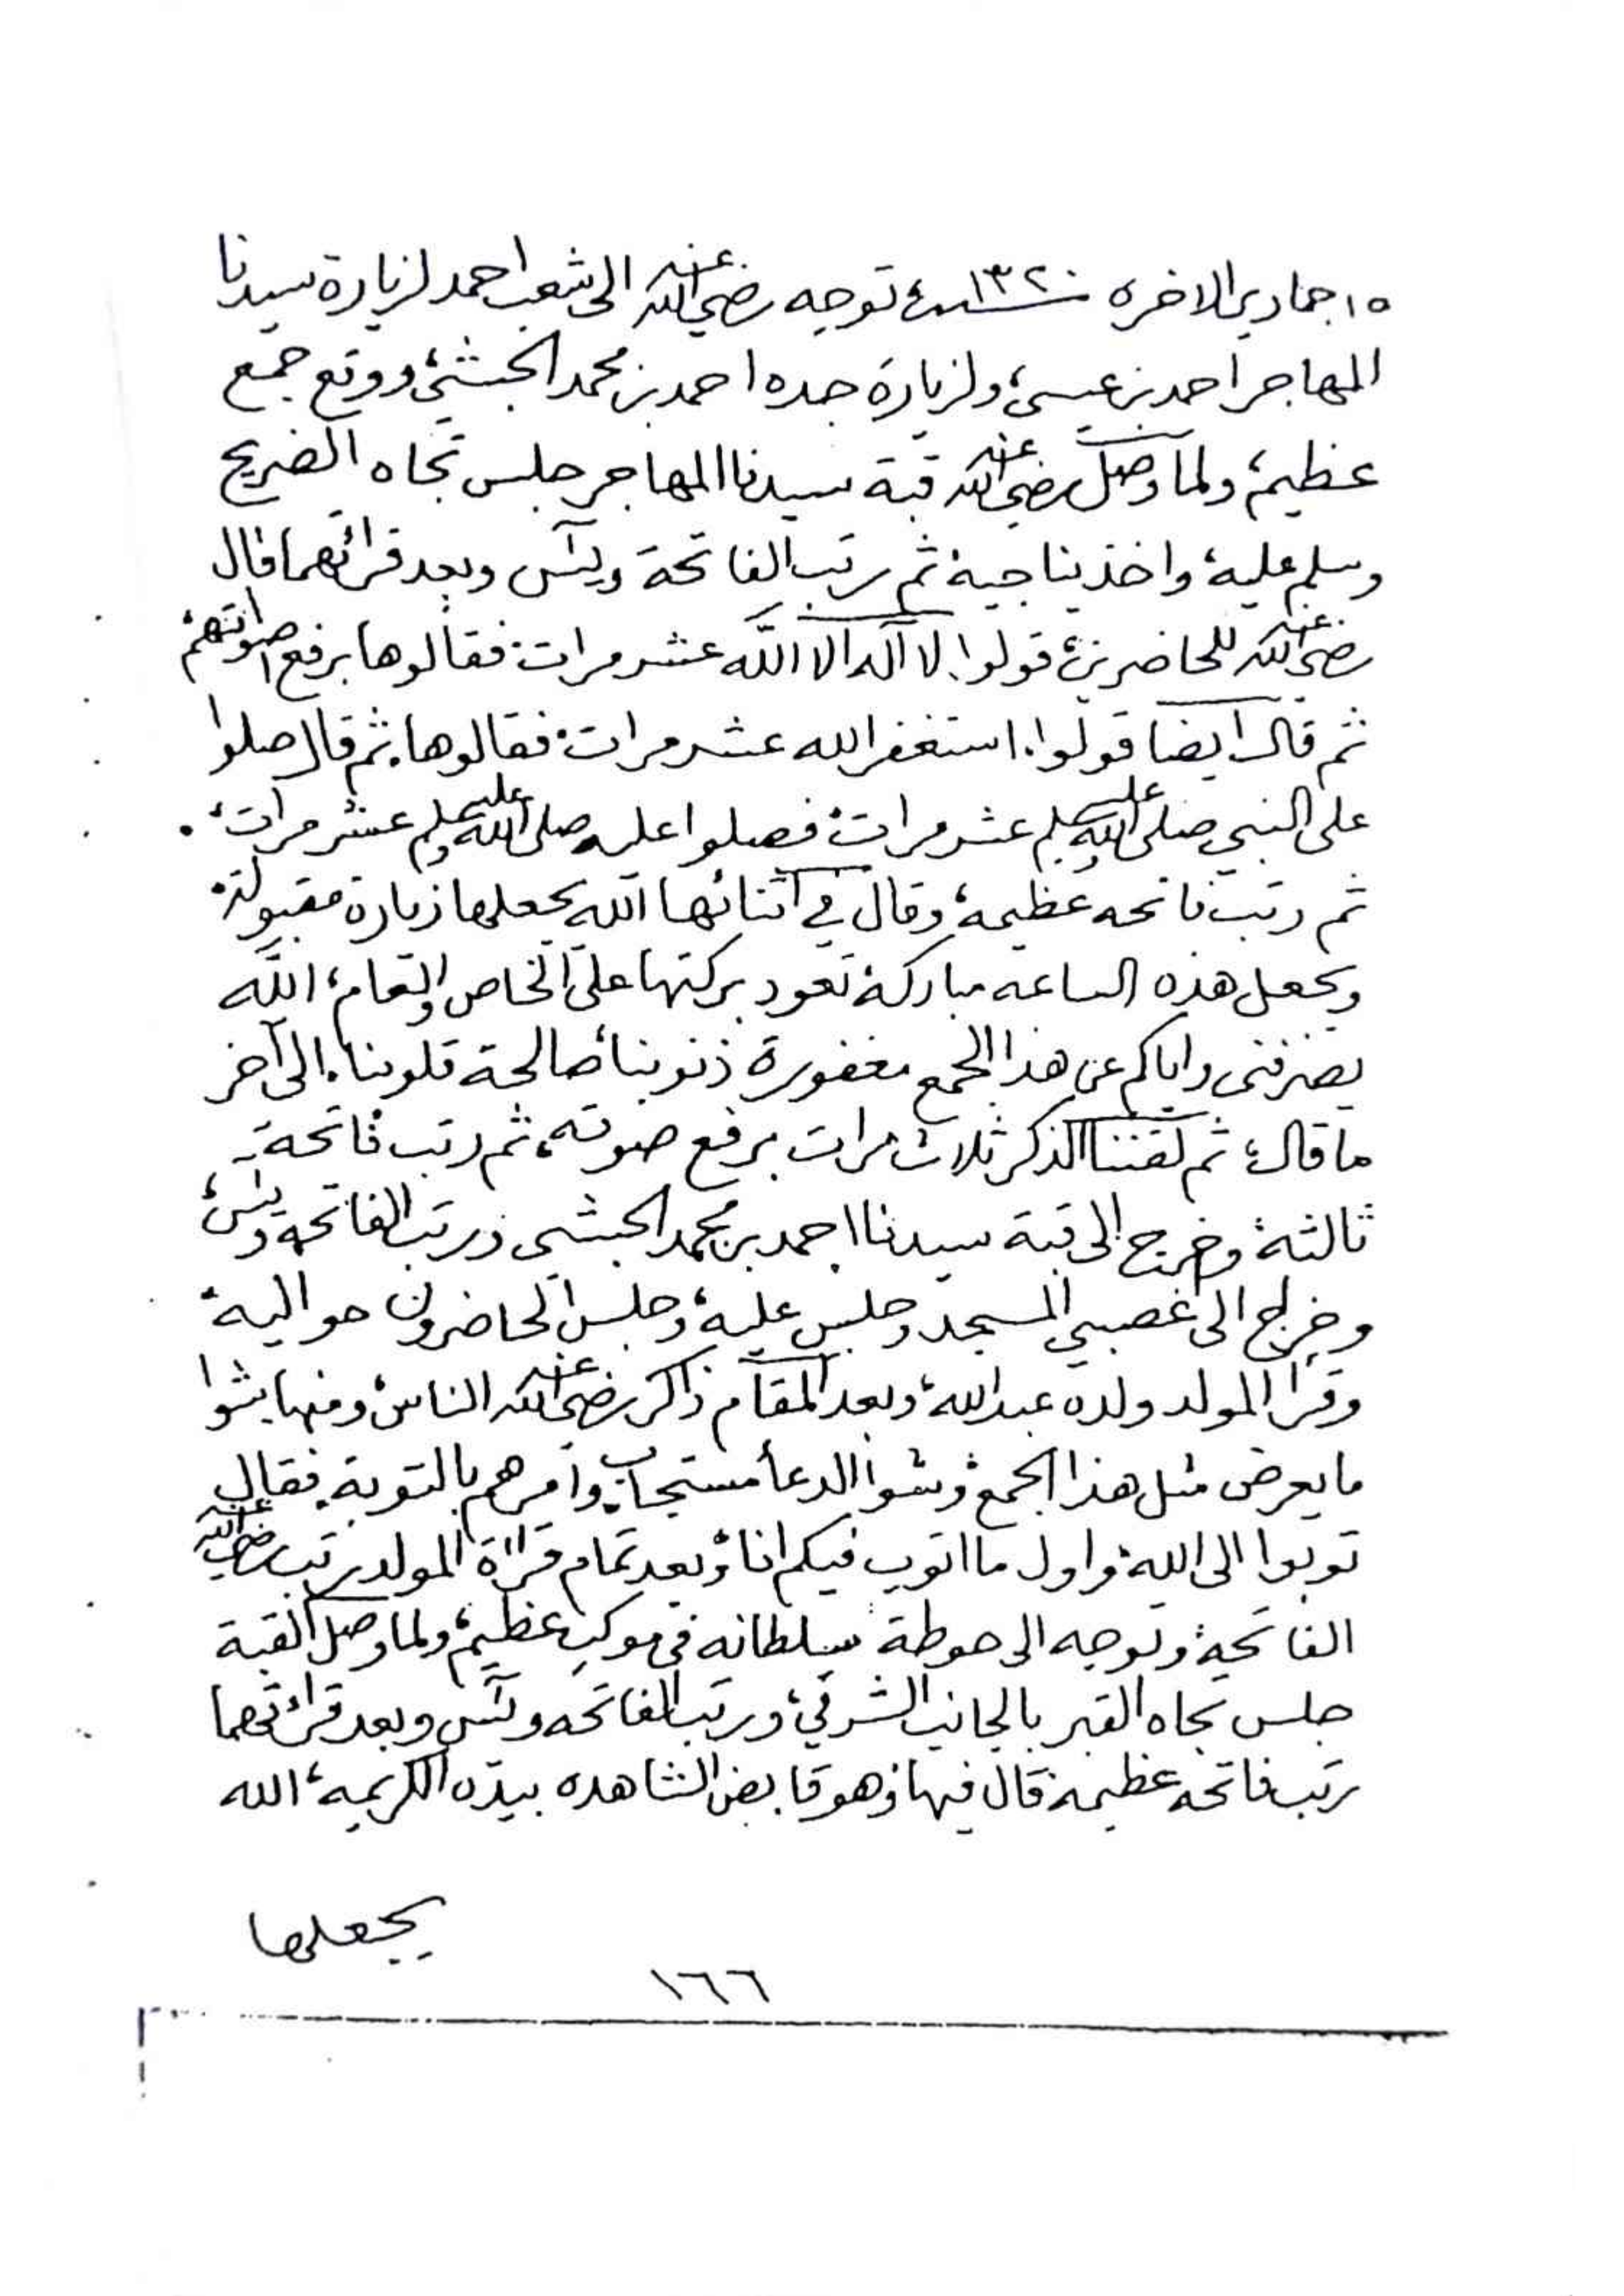 ١٥ جمادى الاخره سنة ١٣٢٠ توجه رضي الله عنه الى شعب احمد لزيارة سيدنا
المهاجر احمد بن عيسى، ولزيارة جده احمد بن محمد الحبشي، ووقع جمع
عظيم، ولما وصل رضي الله عنه قبة سيدنا المهاجر جلس تجاه الضريح
وسلم عليه، واخذ يناجيه، ثم رتب الفاتحة ويسٓ وبعد قرائتهما قال
رضي الله عنه للحاضرين، قولوا لا آله الا الله عشر مرات، فقالوها برفع اصواتهم،
ثم قال ايضا قولوا، استغفر الله عشر مرات، فقالوها، ثم قال صلوا
على النبي صلى الله عليه وسلم عشر مرات، فصلوا عليه صلى الله عليه وسلم عشر مرات،
ثم رتب فاتحه عظيمة، وقال في اثنائها الله يجعلها زيارة مقبولة،
ويجعل هذه الساعه مباركة، تعود بركتها على الخاص والعام، الله
يصرفنى واياكم عن هذا الجمع مغفورة ذنوبنا، صالحة قلوبنا، الى آخر
ما قال، ثم لقننا الذكر ثلاث مرات برفع صوته، ثم رتب فاتحة
ثالثة، وخرج الى قبة سيدنا احمد بن محمد الحبشي ورتب الفاتحه ويسٓ،
وخرج الى المسجد وجلس عليه، وجلس الحاضرون حواليه،
وقرأ المولد ولده عبدالله، وبعد المقام ذاكر رضي الله عنه الناس، ومنها بشوا
ما يعرض مثل هذا الجمع، وشوا الدعأ مستجاب، وامرهم بالتوبة، فقال
توبوا الى الله، واول ما اتوب فيكم انا، وبعد تمام قراءة المولد رتب رضي الله عنه
الفاتحة، وتوجه الى حوطة سلطانه في موكب عظيم، ولما وصل القبة
جلس تجاه القبر بالجانب الشرقي، ورتب الفاتحه ويسٓ وبعد قرائتهما
رتب فاتحه عظيمة، قال فيها، وهو قابض الشاهده بيده الكريمة، الله
يجعلها
١٦٦